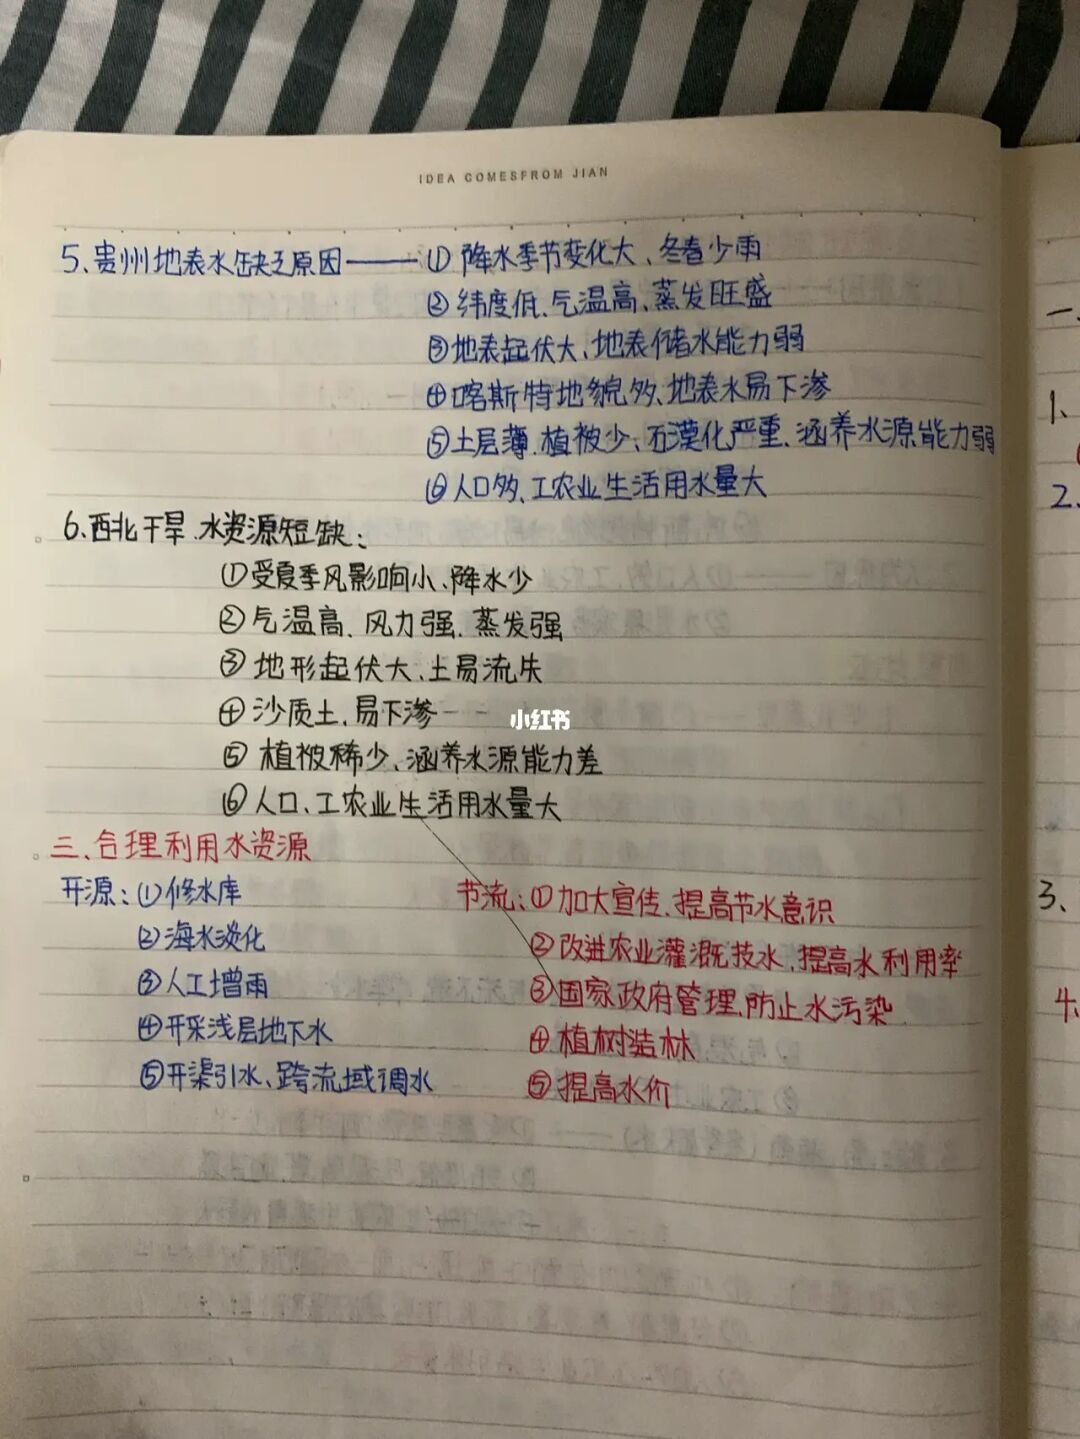 IDEA COMESFROM JIAN
5、贵州地表水缺乏原因——①降水季节变化大、冬春少雨
②纬度低、气温高、蒸发旺盛
③地表起伏大、地表储水能力弱
④喀斯特地貌多、地表水易下渗
⑤土层薄、植被少、石漠化严重、涵养水源能力弱
⑥人口多、工农业生活用水量大
6、西北干旱、水资源短缺：
①受夏季风影响小、降水少
②气温高、风力强、蒸发强
③地形起伏大、土易流失
④沙质土、易下渗
小红书
⑤植被稀少、涵养水源能力差
⑥人口、工农业生活用水量大
三、合理利用水资源
开源：①修水库
②海水淡化
③人工增雨
④开采浅层地下水
⑤开渠引水、跨流域调水
节流：①加大宣传、提高节水意识
②改进农业灌溉技水、提高水利用率
③国家政府管理、防止水污染
④植树造林
⑤提高水价
一、
1、
2、
3、
4、